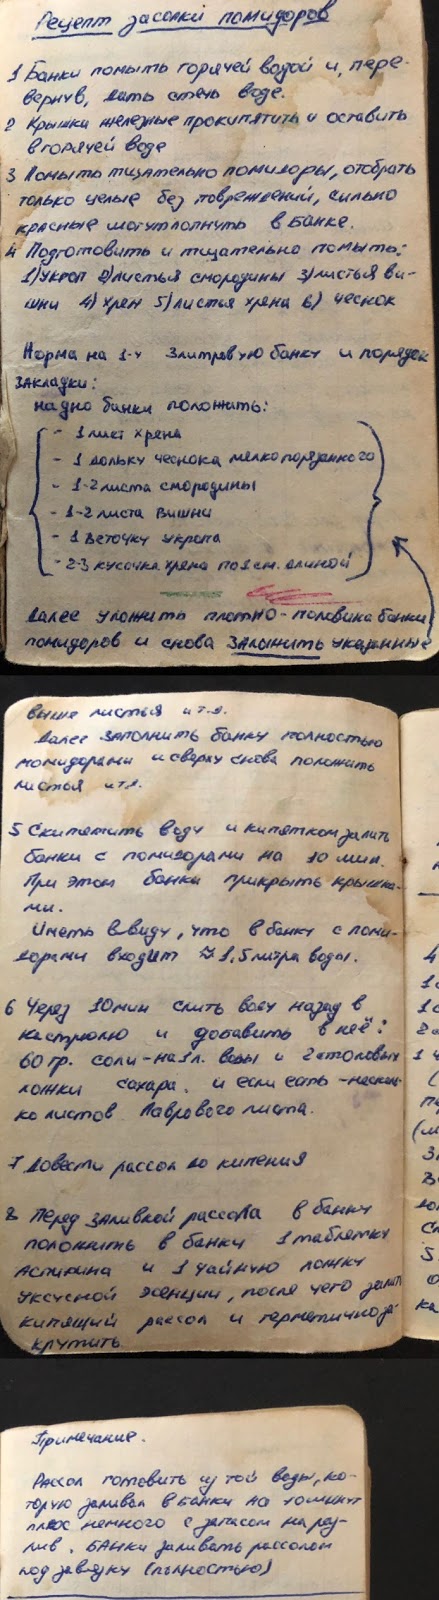 Рецепт засолки помидоров
1 Банки помыть горячей водой и, пере-
вернув, дать стечь воде.
2 Крышки железные прокипятить и оставить
в горячей воде
3 Помыть тщательно помидоры, отобрать
только целые без повреждений, сильно
красные могут лопнуть в банке.
4 Подготовить и тщательно помыть:
1) укроп 2) листья смородины 3) листья ви-
шни 4) хрен 5) листья хрена 6) чеснок
Норма на 1-у 3литровую банку и порядок
закладки:
на дно банки положить:
- 1 лист хрена
- 1 дольку чеснока мелко порезанного
- 1-2 листа смородины
- 1-2 листа вишни
- 1 веточку укропа
- 2-3 кусочка хрена по 1 см. длиной
Далее уложить плотно - половина банки
помидоров и снова заложить указанные
выше листья и т.д.
Далее заполнить банку полностью
помидорами и сверху снова положить
листья и т.д.
5 Скипятить воду и кипятком залить
банки с помидорами на 10 мин.
При этом банки прикрыть крышка-
ми.
Иметь ввиду, что в банку с поми-
дорами входит 1,5 литра воды.
6 Через 10 мин слить воду назад в
кастрюлю и добавить в неё:
60 гр. соли - на 1 л. воды и 2 столовых
ложки сахара. и если есть - несколь-
ко листов Лаврового листа.
7 Довести рассол до кипения
8 Перед заливкой рассола в банку
положить в банку 1 таблетку
Аспирина и 1 чайную ложку
уксусной эсенции, после чего залить
кипящий рассол и герметично за-
крутить
Примечание.
Рассол готовить из той воды, ко-
торую заливал в банки на 10 минут
плюс немного с запасом на раз-
лив. Банки заливать рассолом
под завязку (полностью)